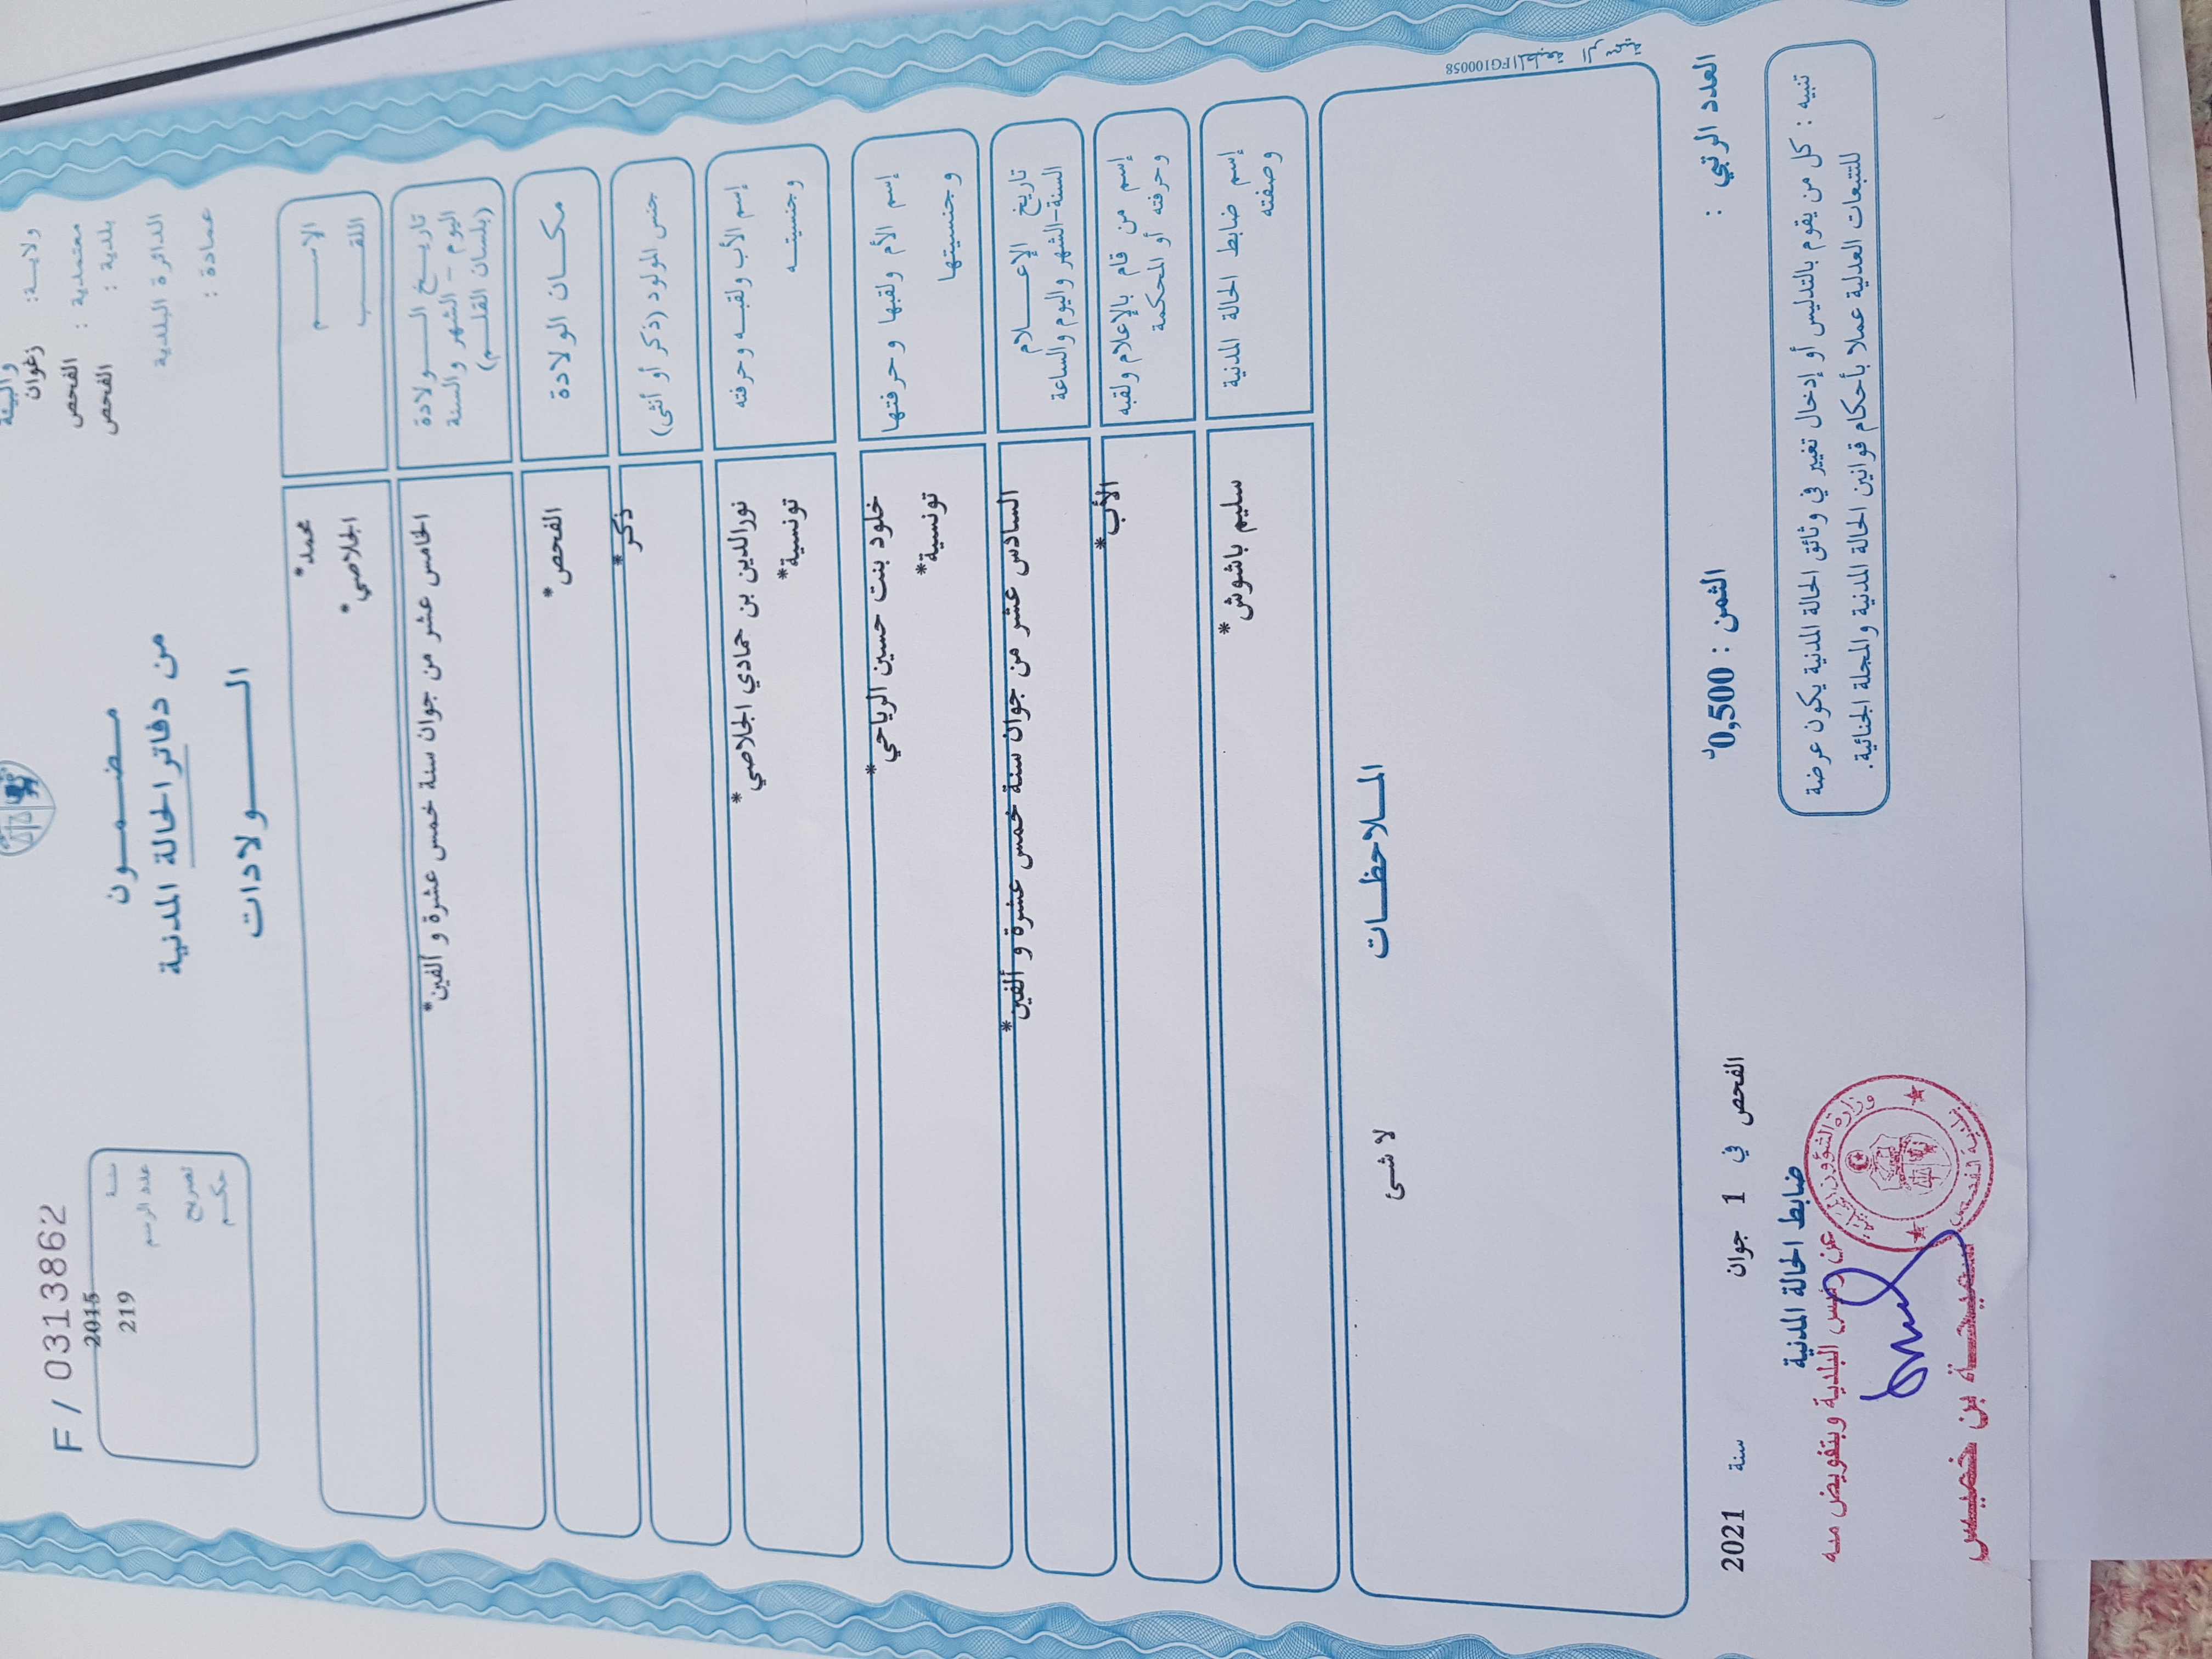 والبيئة
ولايـة: زغوان
معتمدية : الفحص
بلدية : الفحص
الدائرة البلدية
عمادة :
F / 0313862
سنـة 2015
عدد الرسم 219
تصريح
حكـم
مـضـمـون
من دفاتر الحالة المدنية
الـــولادات
الاســـم محمد*
اللقـــب الجلاصي*
تاريـــخ الـــولادة
اليوم - الشهر والسنة
(بلسان القلـم)
الخامس عشر من جوان سنة خمس عشرة و ألفين*
مكـان الولادة الفحص*
جنس المولود (ذكر أو أنثى) ذكر*
إسم الأب ولقبـه وحرفته نورالدين بن حمادي الجلاصي*
وجنسيتـه تونسية*
إسم الأم ولقبها وحرفتها خلود بنت حسين الرياحي*
وجنسيتها تونسية*
تاريخ الإعـــلام
السنة-الشهر واليوم والساعة
السادس عشر من جوان سنة خمس عشرة و ألفين*
إسم من قام بالإعلام ولقبه
وحرفته أو المحكمة
الأب*
إسم ضابط الحالة المدنية
وصفته
سليم باشوش*
المـلاحظـات
لا شئ
FG100058
العدد الرتبي :
الثمن : 0,500د
الفحص في 1 جوان سنة 2021
تنبيه : كل من يقوم بالتدليس أو إدخال تغيير في وثائق الحالة المدنية يكون عرضة
للتتبعات العدلية عملا بأحكام قوانين الحالة المدنية والمجلة الجنائية.
ضابط الحالة المدنية
عن رئيس البلدية وبتفويض منه
بن خميس
وزارة الشؤون المحلية